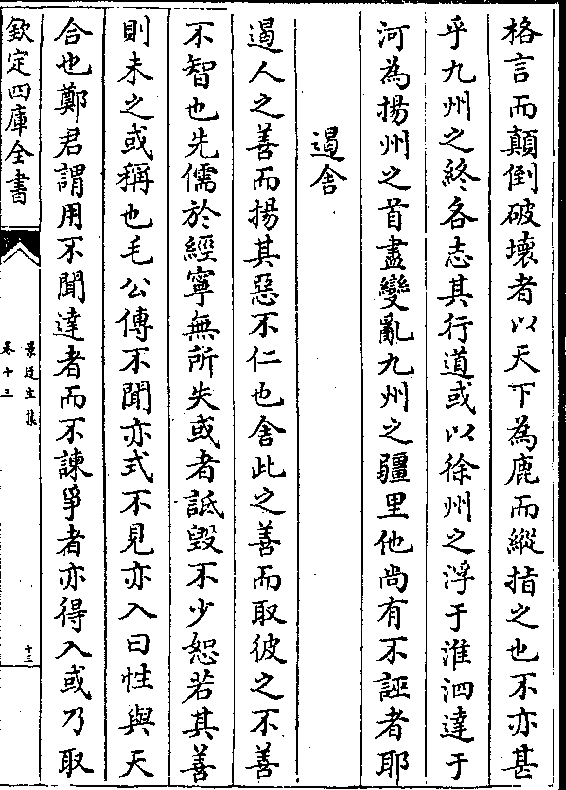 格言而顛倒破壞者以天下為鹿而縱指之也不亦甚
乎九州之終各志其行道或以徐州之浮于淮泗達于
河為揚州之首盡變亂九州之疆里他尚有不誣者耶
遏舍
遏人之善而揚其惡不仁也舍此之善而取彼之不善
不智也先儒於經寧無所失或者詆毀不少恕若其善
則未之或稱也毛公傳不聞亦式不見亦入曰性與天
合也鄭君謂用不聞達者而不諫爭者亦得入或乃取
欽定四庫全書
景迂生集
卷十三
十三